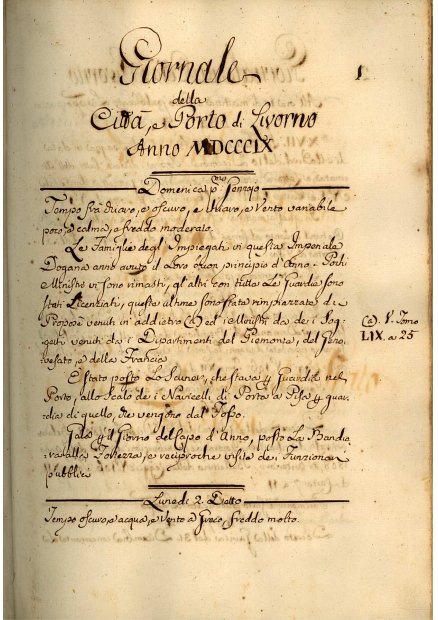 Giornale
1
della
Città, e Porto di Livorno
Anno MDCCCIX
Domenica p.mo Genn.o
Tempo frà chiaro, e oscuro, e chiaro, e Vento variabile
poco e calma, e freddo moderato.
Le Famiglie degl' Impiegati in questa Imperiale
Dogana anno avuto il Loro buon principio d'Anno. Pochi
Ministri vi sono rimasti, gl'altri con tutte Le Guardie sono
stati Licenziati, queste ultime sono state rimpiazzate di
venuti in addietro (a) ed i Ministri da dei Sog-
getti venuti da i Dipartimenti del Piemonte, del Geno-
vesato, e della Francia
(a) V. Tomo
LIX. a 25
È stato posto Lo che stava di Guardia nel
Porto, allo Scalo de i Navicelli di Porta a Pisa di guar-
dia di quello, che vengono dal Fosso.
Gala il Giorno del Capo d'Anno, posto La Bandie-
ra alla Fortezza, e reciproche visite dei Funzionari
pubblici
Lunedì 2. Detto
Tempo oscuro, e acqua, e Vento a Greco, freddo molto.